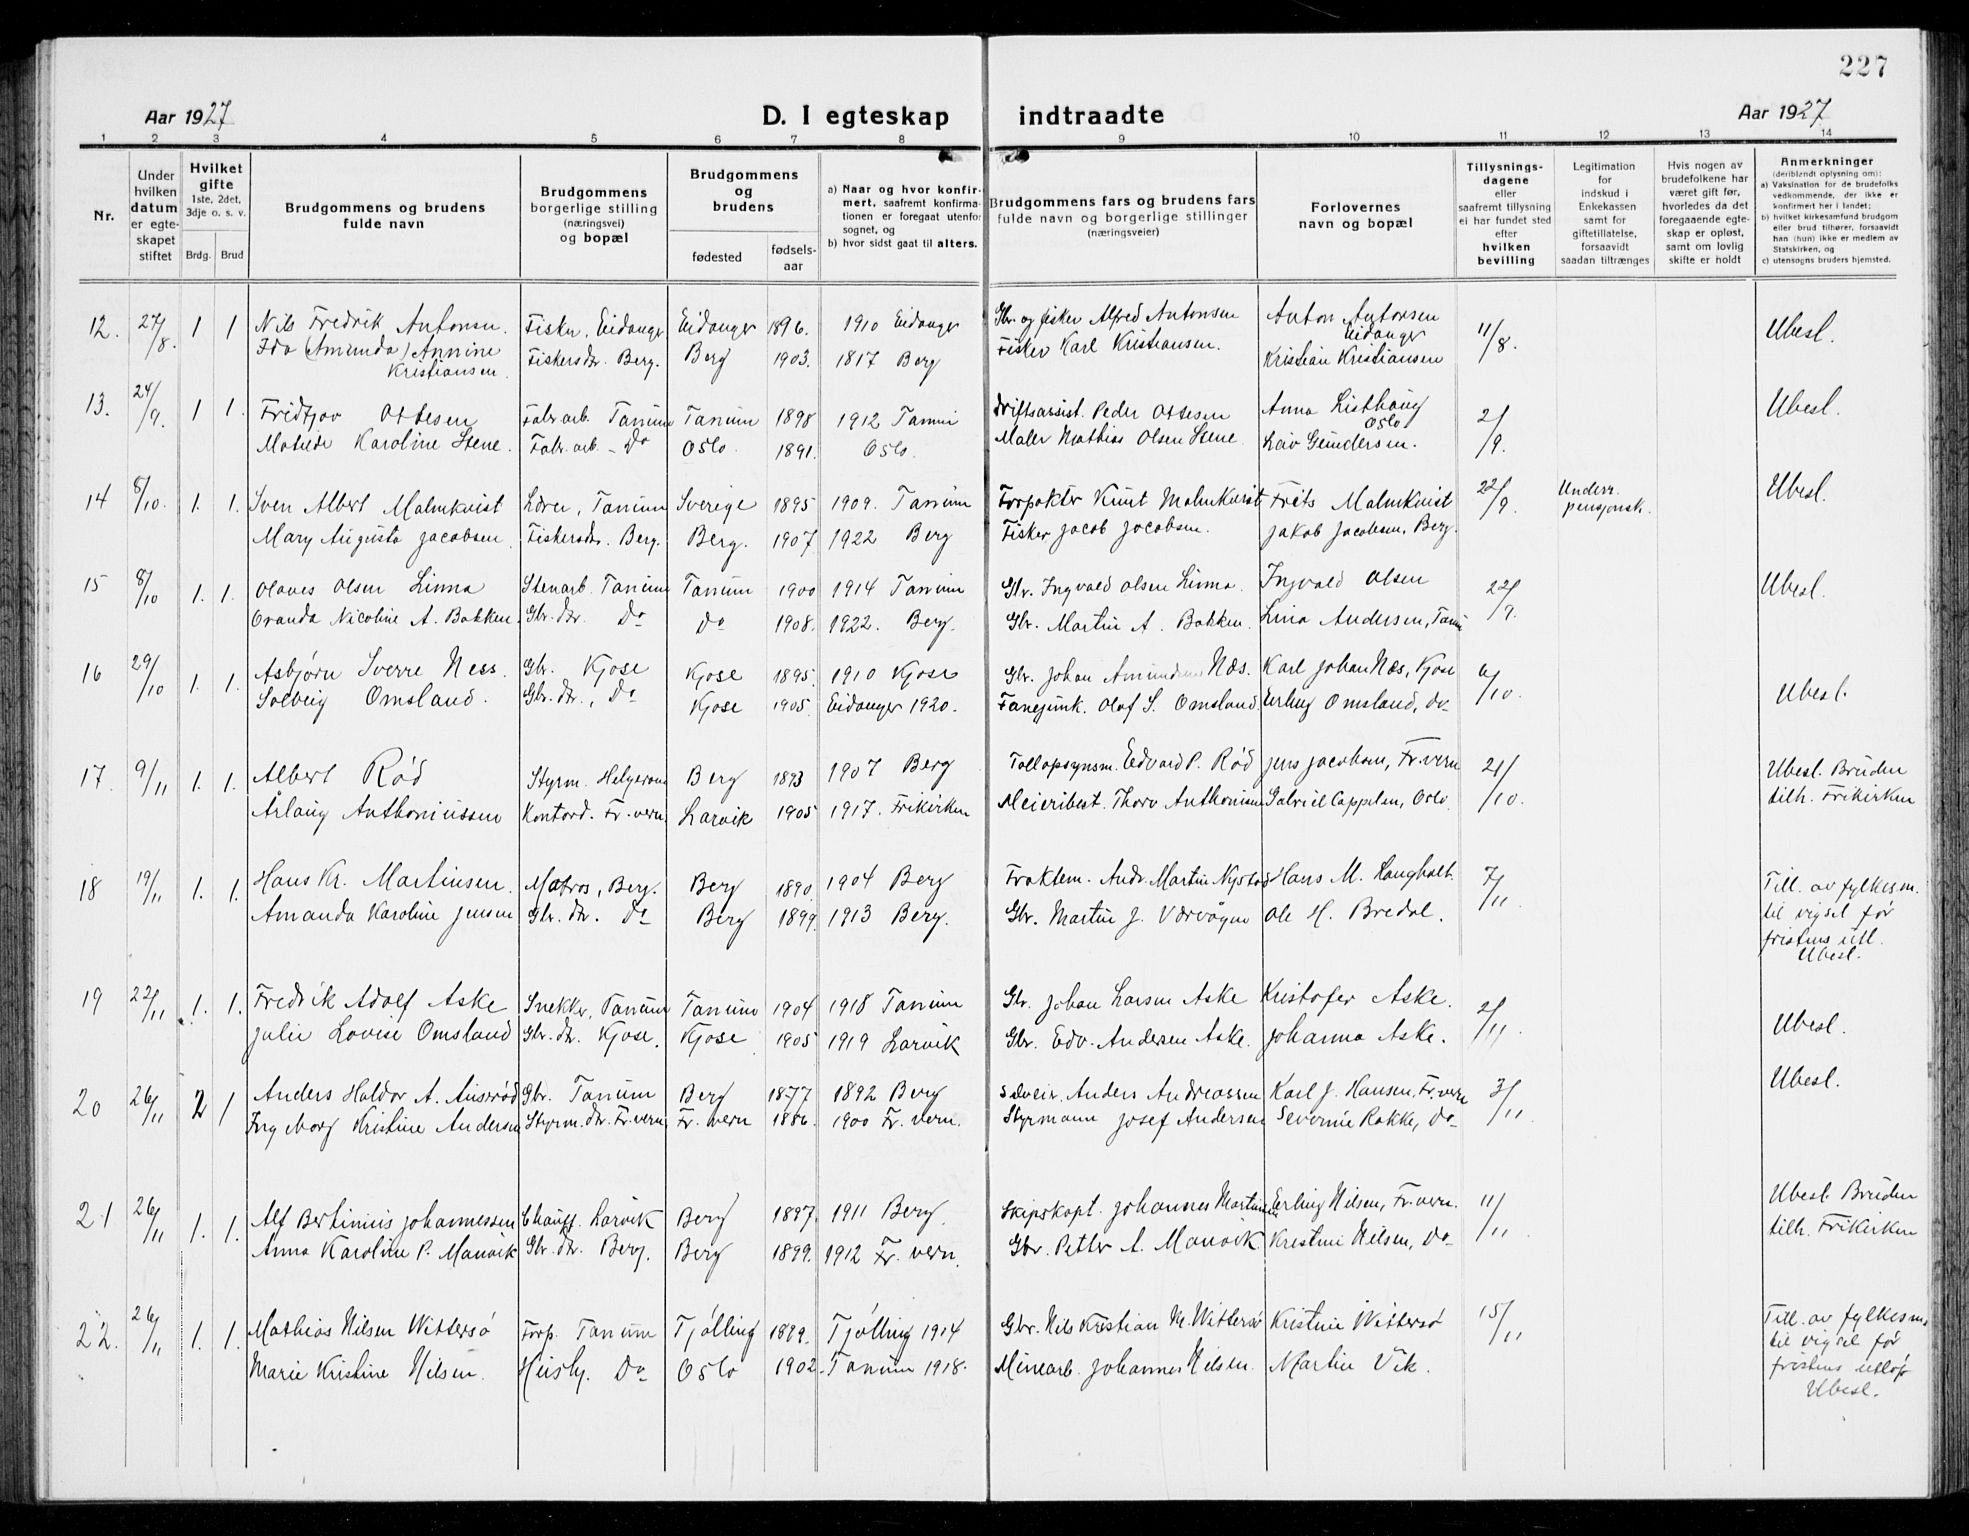 227
Aar 1927
D. I egteskap indtraadte
Aar 1927
1 2 3 4 5 6 7 8 9 10 11 12 13 14
Nr.
Under hvilken datum er egteskapet stiftet
Hvilket gifte 1ste, 2det, 3dje o. s. v.
Brdg. Brud
Brudgommens og brudens fulde navn
Brudgommens borgerlige stilling (næringsvei) og bopæl
Brudgommens og brudens
fødested
fødsels-aar
a) Naar og hvor konfirmert, saafremt konfirmationen er foregaat utenfor sognet, og
b) hvor sidst gaat til alters.
Brudgommens fars og brudens fars fulde navn og borgerlige stillinger (næringsveier)
Forlovernes navn og bopæl
Tillysnings-dagene eller saafremt tillysning ei har fundet sted efter hvilken bevilling
Legitimation for indskud i Enkekassen samt for giftetillatelse, forsaavidt saadan tiltrænges
Hvis nogen av brudefolkene har været gift før, hvorledes da det foregaaende egteskap er opløst, samt om lovlig skifte er holdt
Anmerkninger (deriblendt oplysning om):
a) Vaksination for de brudefolks vedkommende, der ikke er konfirmert her i landet;
b) hvilket kirkesamfund brudgom eller brud tilhører, forsaavidt han (hun) ikke er medlem av Statskirken, og
c) utensogns bruders hjemsted.
12. 27/8. 1 1 Nils Fredrik Antonsen. Fisker, Eidanger Eidanger 1896. 1910 Eidanger Gbr. og fisker Alfred Antonsen Anton Antonsen Eidanger 11/8. Ubesl.
Ida (Amanda) Annine Kristiansen. Fiskersdr. Berg. Berg 1903. 1817 Berg Fisker Karl Kristiansen. Kristian Kristiansen
13. 24/9. 1 1. Fridtjov Ottesen Fabr. arb. Tanum Tanum 1898 1912 Tanum Driftsassist. Peder Ottesen Anna Listhaug Oslo 2/9. Ubesl.
Matilde Karoline Stene. Fabr. arb. - Do Oslo. 1891. Oslo. Maler Mathias Olsen Stene. Leiv Gundersen.
14 8/10. 1. 1. Sven Albert Malmkvist Lærer, Tanum Sverige 1895 1909. Tanum Forpakter Knut Malmkvist Frits Malmkvist 22/9. Underv. pensjonsk. Ubesl.
Mary Augusta Jacobsen. Fiskersdr. Berg. Berg. 1907 1922 Berg Fisker Jacob Jacobsen. Jakob Jacobsen, Berg.
15 8/10 1. 1. Olaves Olsen Linna Stenarb. Tanum Tanum 1900 1914 Tanum Gbr. Ingvald Olsen Linna. Ingvald Olsen 22/9. Ubesl.
Oranda Nicoline A. Bakken. Gbr. dr. Do Do 1908. 1922. Berg. Gbr. Martin A. Bakken. Lina Andersen, Tanum
16 29/10 1. 1. Asbjørn Sverre Ness. Gbr. Kjose Kjose 1895. 1910 Kjose Gbr. Johan Amundsen Næs. Karl Johan Næs, Kjose 6/10. Ubesl.
Solveig Omsland. Gbr. dr., Do Kjose 1905. Eidanger 1920. Fanejunk. Olaf S. Omsland. Erling Omsland, do
17. 9/11 1. 1. Albert Rød Styrm. Helgeroa Berg 1893 1907 Berg Tollopsynsm. Edvard P. Rød Jens Jacobsen, Fr.vern 21/10. Ubesl. Bruden
Årlaug Anthoniussen Kontord. Fr.vern. Larvik 1905 1917. Frikirken Meieribest. Thorv. Anthonisen Gabriel Cappelen, Oslo. tilh. Frikirken
18 19/11 1. 1. Hans Kr. Martinsen. Matros, Berg. Berg 1890. 1904 Berg Fraktem. Andr. Martin Nystad Hans M. Langholt. 7/11. Till. av fylkesm.
Amanda Karoline Jensen Gbr. dr. Do Berg 1899. 1913 Berg. Gbr. Martin J. Værvågen Ole H. Bredal. til vigsel før
fristens utl.
Ubesl.
19 22/11 1. 1. Fredrik Adolf Aske Snekker, Tanum Tanum 1904 1918 Tanum Gbr. Johan Larsen Aske Kristofer Aske. 2/11. Ubesl.
Julie Lovise Omsland Gbr. dr. Kjose. Kjose 1905 1919 Larvik Gbr. Edv. Andersen Aske. Johanna Aske.
20 26/11 2 1 Anders Haldor A. Ausrød Gbr. Tanum Berg 1877 1892 Berg Selveier Anders Andreassen Karl J. Hansen, Fr.vern 3/11. Ubesl.
Ingeborg Kristine Andersen Styrm. dr. Fr.vern. Fr. vern 1886. 1900 Fr. vern. Styrmann Josef Andersen Severine Rakke, do
21 26/11 1. 1. Alf Bertinius Johannessen Chauff. Larvik Berg 1897. 1911 Berg. Skipskapt. Johannes Martinsen Erling Nilsen, Fr.vern. 11/11 Ubesl. Bruden
Anna Karoline P. Manvik Gbr. dr. Berg. Berg 1899. 1912 Fr. vern. Gbr. Petter A. Manvik. Kristine Nilsen, do tilh. Frikirken
22. 26/11 1. 1. Mathias Nilsen Wittersø Forp. Tanum Tjølling 1899. Tjølling 1914 Gbr. Nils Kristian M. Wittersø Kristine Wittersø 15/11 Till. av fylkesm.
Marie Kristine Nilsen. Heisby. Do Oslo 1902. Tanum 1918. Minearb. Johannes Nilsen. Martin Vik. til vigsel før
fristens utløp
Ubesl.